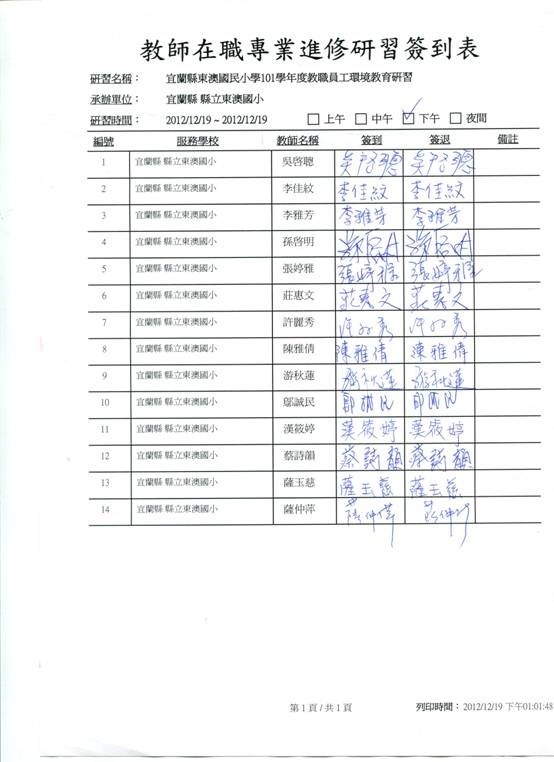 教師在職專業進修研習簽到表
研習名稱： 宜蘭縣東澳國民小學101學年度教職員工環境教育研習
承辦單位： 宜蘭縣 縣立東澳國小
研習時間： 2012/12/19 ~ 2012/12/19 □ 上午 □ 中午 ☑ 下午 □ 夜間
編號 服務學校 教師名稱 簽到 簽退 備註
1 宜蘭縣 縣立東澳國小 吳啓聰 吳啓聰 吳啓聰
2 宜蘭縣 縣立東澳國小 李佳紋 李佳紋 李佳紋
3 宜蘭縣 縣立東澳國小 李雅芳 李雅芳 李雅芳
4 宜蘭縣 縣立東澳國小 孫啓明
5 宜蘭縣 縣立東澳國小 張婷雅 張婷雅 張婷雅
6 宜蘭縣 縣立東澳國小 莊惠文 莊惠文 莊惠文
7 宜蘭縣 縣立東澳國小 許麗秀 許麗秀 許麗秀
8 宜蘭縣 縣立東澳國小 陳雅倩 陳雅倩 陳雅倩
9 宜蘭縣 縣立東澳國小 游秋蓮 游秋蓮 游秋蓮
10 宜蘭縣 縣立東澳國小 鄔誠民
11 宜蘭縣 縣立東澳國小 漢筱婷 漢筱婷 漢筱婷
12 宜蘭縣 縣立東澳國小 蔡詩韻 蔡詩韻 蔡詩韻
13 宜蘭縣 縣立東澳國小 薩玉慈 薩玉慈 薩玉慈
14 宜蘭縣 縣立東澳國小 薩仲萍
第 1 頁 / 共 1 頁 列印時間： 2012/12/19 下午01:01:48